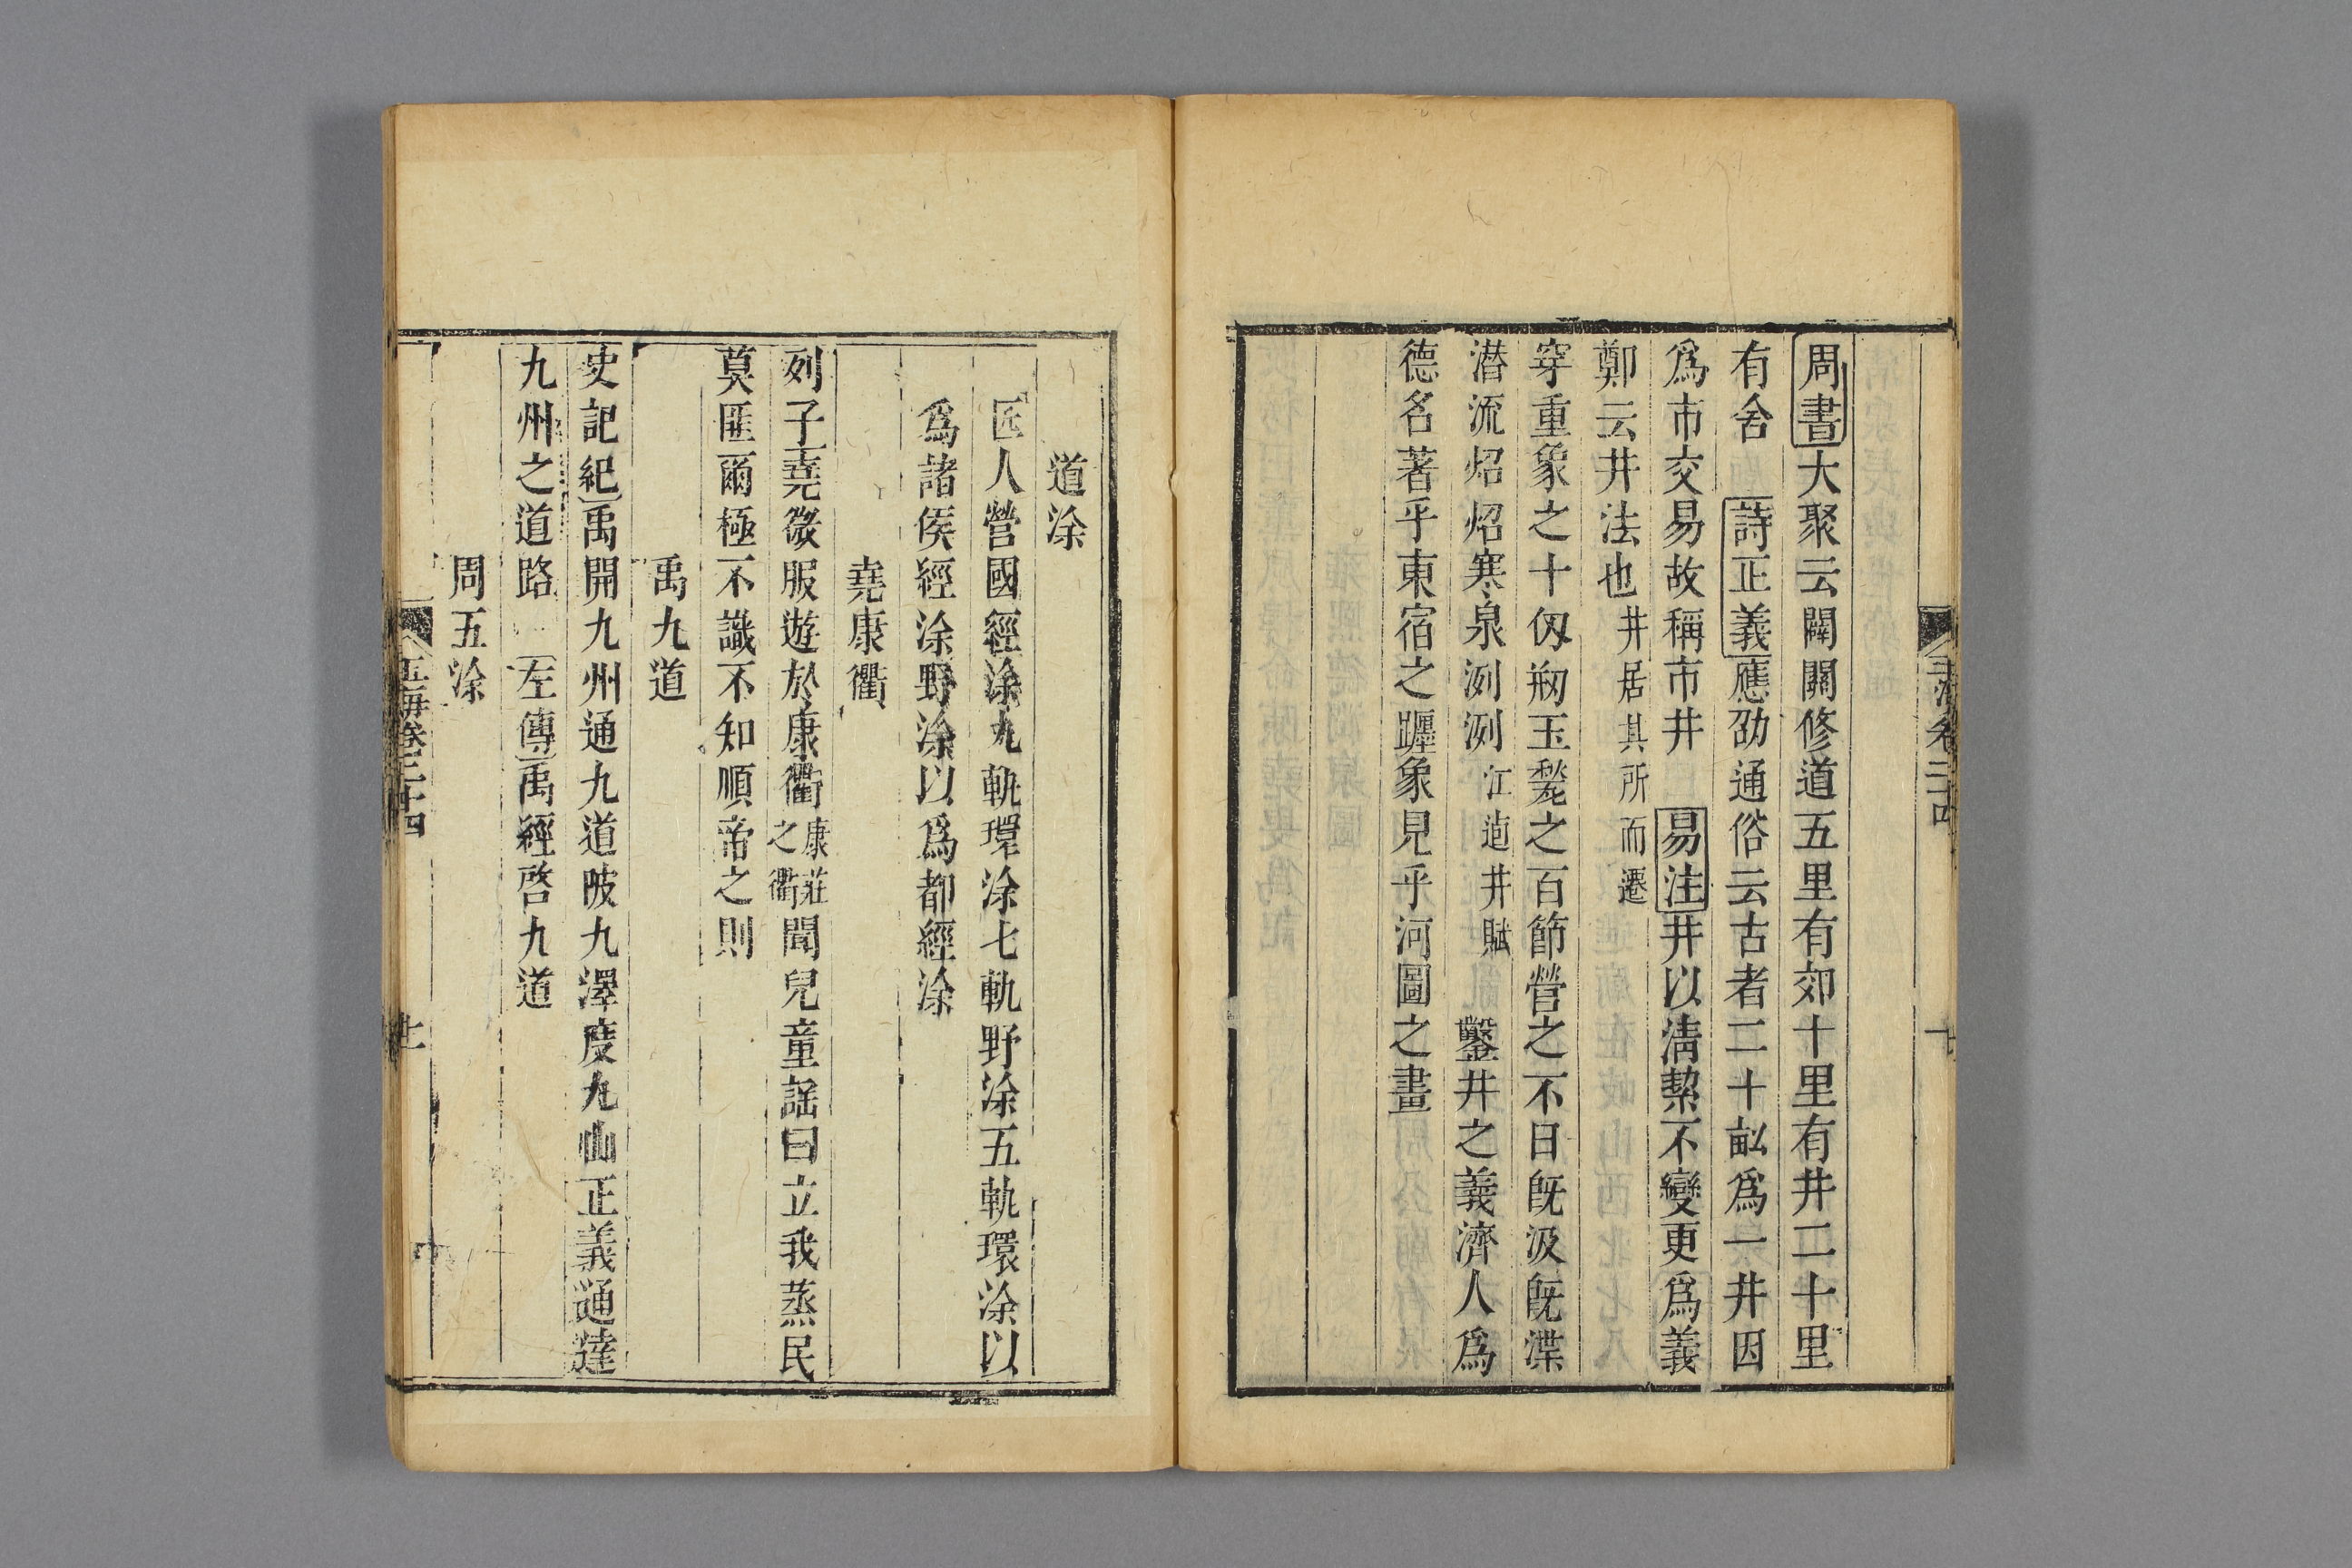 周書大聚云闢關修道五里有郊十里有井二十里
有舍 詩正義應劭通俗云古者二十畝爲一井因
爲市交易故稱市井 易注井以清絜不變更爲義
鄭云井法也井居其所而遷
穿重象之十仭剏玉甃之百節營之不日旣汲旣渫
潜流炤炤寒泉洌洌江逌井賦 鑿井之義濟人爲
德名著乎東宿之躔象見乎河圖之畫
玉海卷二十四
道涂
匠人營國經涂九軌環涂七軌野涂五軌環涂以
爲諸侯經涂野涂以爲都經涂
堯康衢
列子堯微服遊於康衢康莊之衢聞兒童謡曰立我蒸民
莫匪爾極不識不知順帝之則
禹九道
史記紀禹開九州通九道陂九澤度九山正義通達
九州之道路 左傳禹經啓九道
周五涂
玉海卷二十四